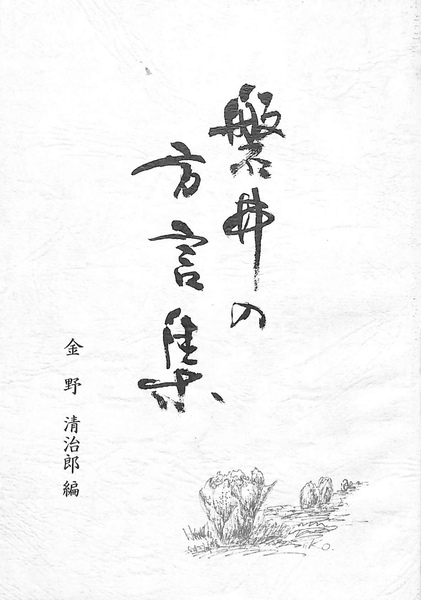 磐井の
方言集
金野 清治郎 編
K.O.